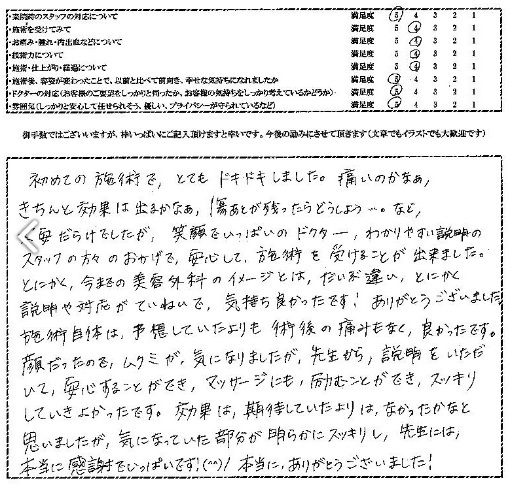 ・来院時のスタッフの対応について 満足度 5 4 3 2 1
・施術を受けてみて 満足度 5 4 3 2 1
・お痛み・腫れ・内出血などについて 満足度 5 4 3 2 1
・技術力について 満足度 5 4 3 2 1
・施術・仕上がり・経過について 満足度 5 4 3 2 1
・施術後、容姿が変わったことで、以前と比べて前向き、幸せな気持ちになれましたか 満足度 5 4 3 2 1
・ドクターの対応(お客様のご要望をしっかりと伺ったか、お客様の気持ちをしっかり考えているかどうか) 満足度 5 4 3 2 1
・雰囲気(しっかりと安心して任せられそう、優しい、プライバシーが守られているなど) 満足度 5 4 3 2 1
御手数ではございますが、枠いっぱいにご記入頂けますと幸いです。今後の励みにさせて頂きます(文章でもイラストでも大歓迎です)
初めての施術で、とてもドキドキしました。痛いのかなぁ、
きちんと効果は出るかなぁ、傷あとが残ったらどうしよう…。など、
安だらけでしたが、笑顔でいっぱいのドクター、わかりやすい説明の
スタッフの方々のおかげで、安心して、施術を受けることが出来ました。
とにかく、今までの美容外科のイメージとは、だいぶ違い、とにかく
説明や対応がていねいで、気持ち良かったです!ありがとうございました
施術自体は、予想していたよりも術後の痛みもなく、良かったです。
顔だったので、ムクミが、気になりましたが、先生から、説明をいただ
いて、安心することができ、マッサージにも、励むことができ、スッキリ
していきよかったです。効果は、期待していたよりは、なかったかなと
思いましたが、気になっていた部分が明らかにスッキリし、先生には、
本当に感謝でいっぱいです!(^^)!本当に、ありがとうございました!